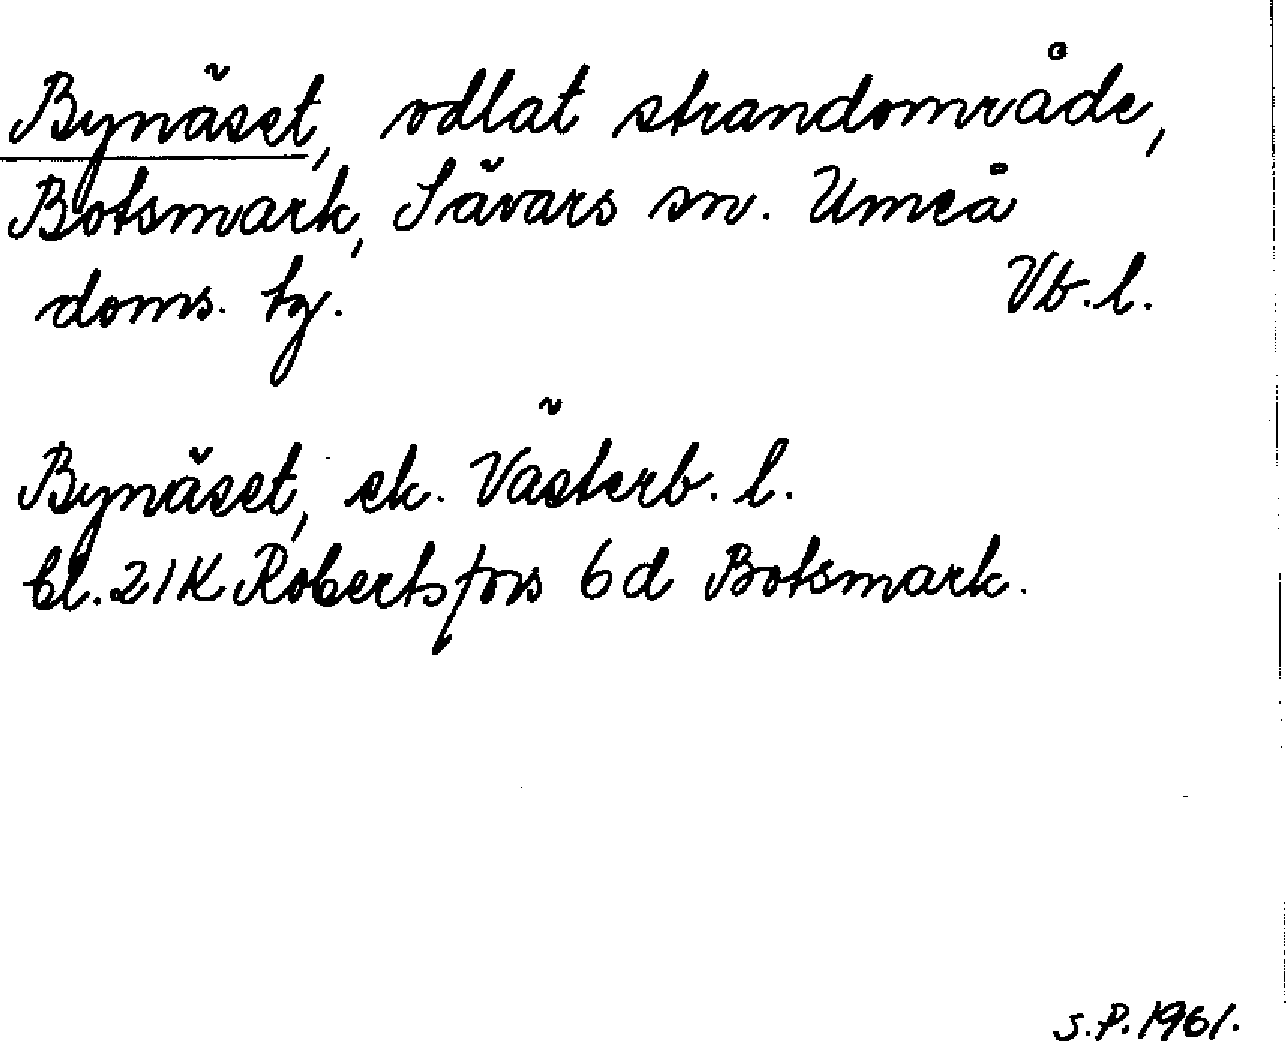 Bynäset, odlat strandområde,
Botsmark, Sävars sn. Umeå
doms. tg. Vb. l.
Bynäset, ek. Västerb. l.
bl. 21K Robertsfors 6d Botsmark.
S.P. 1961.